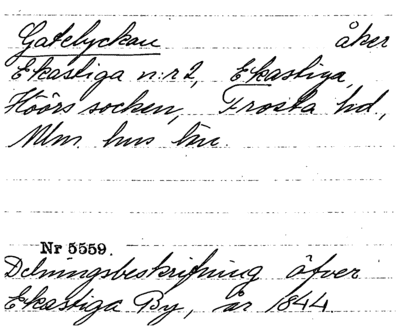 Gatelyckan åker
Ekastiga n:r 2, Ekastiga,
Höörs socken, Frosta hd.,
Mlm. hus län.
Nr 5559.
Delningsbeskrifning öfver
Ekastiga By, år 1844.